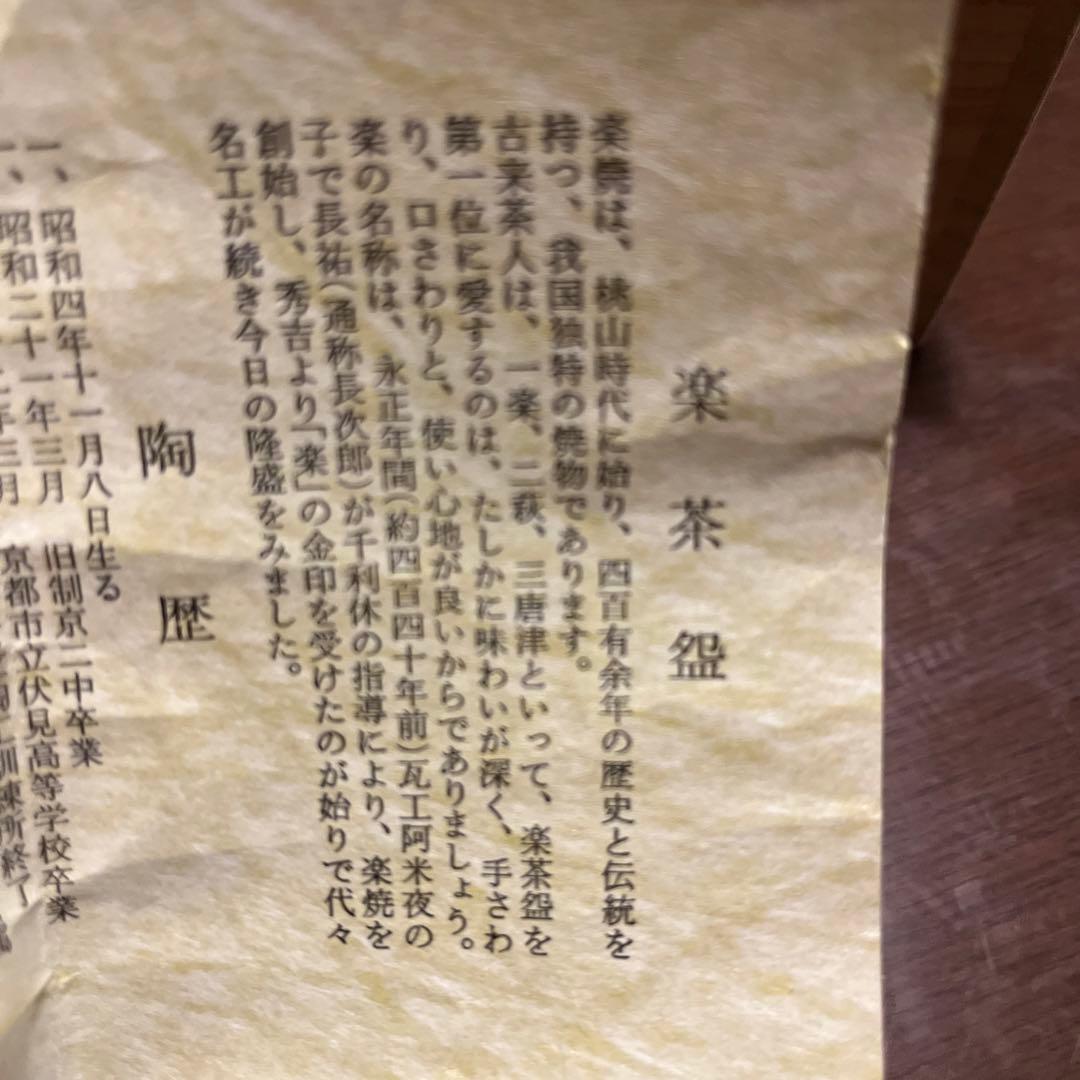 楽茶盌
楽焼は、桃山時代に始り、四百有余年の歴史と伝統を
持つ、我国独特の焼物であります。
古来茶人は、一楽、二萩、三唐津といって、楽茶盌を
第一位に愛するのは、たしかに味わいが深く、手さわ
り、口さわりと、使い心地が良いからでありましょう。
楽の名称は、永正年間(約四百四十年前)瓦工阿米夜の
子で長祐(通称長次郎)が千利休の指導により、楽焼を
創始し、秀吉より「楽」の金印を受けたのが始りで代々
名工が続き今日の隆盛をみました。
陶歴
一、昭和四年十一月八日生る
一、昭和二十一年三月 旧制京二中卒業
年三月 京都市立伏見高等学校卒業
訓練所終了